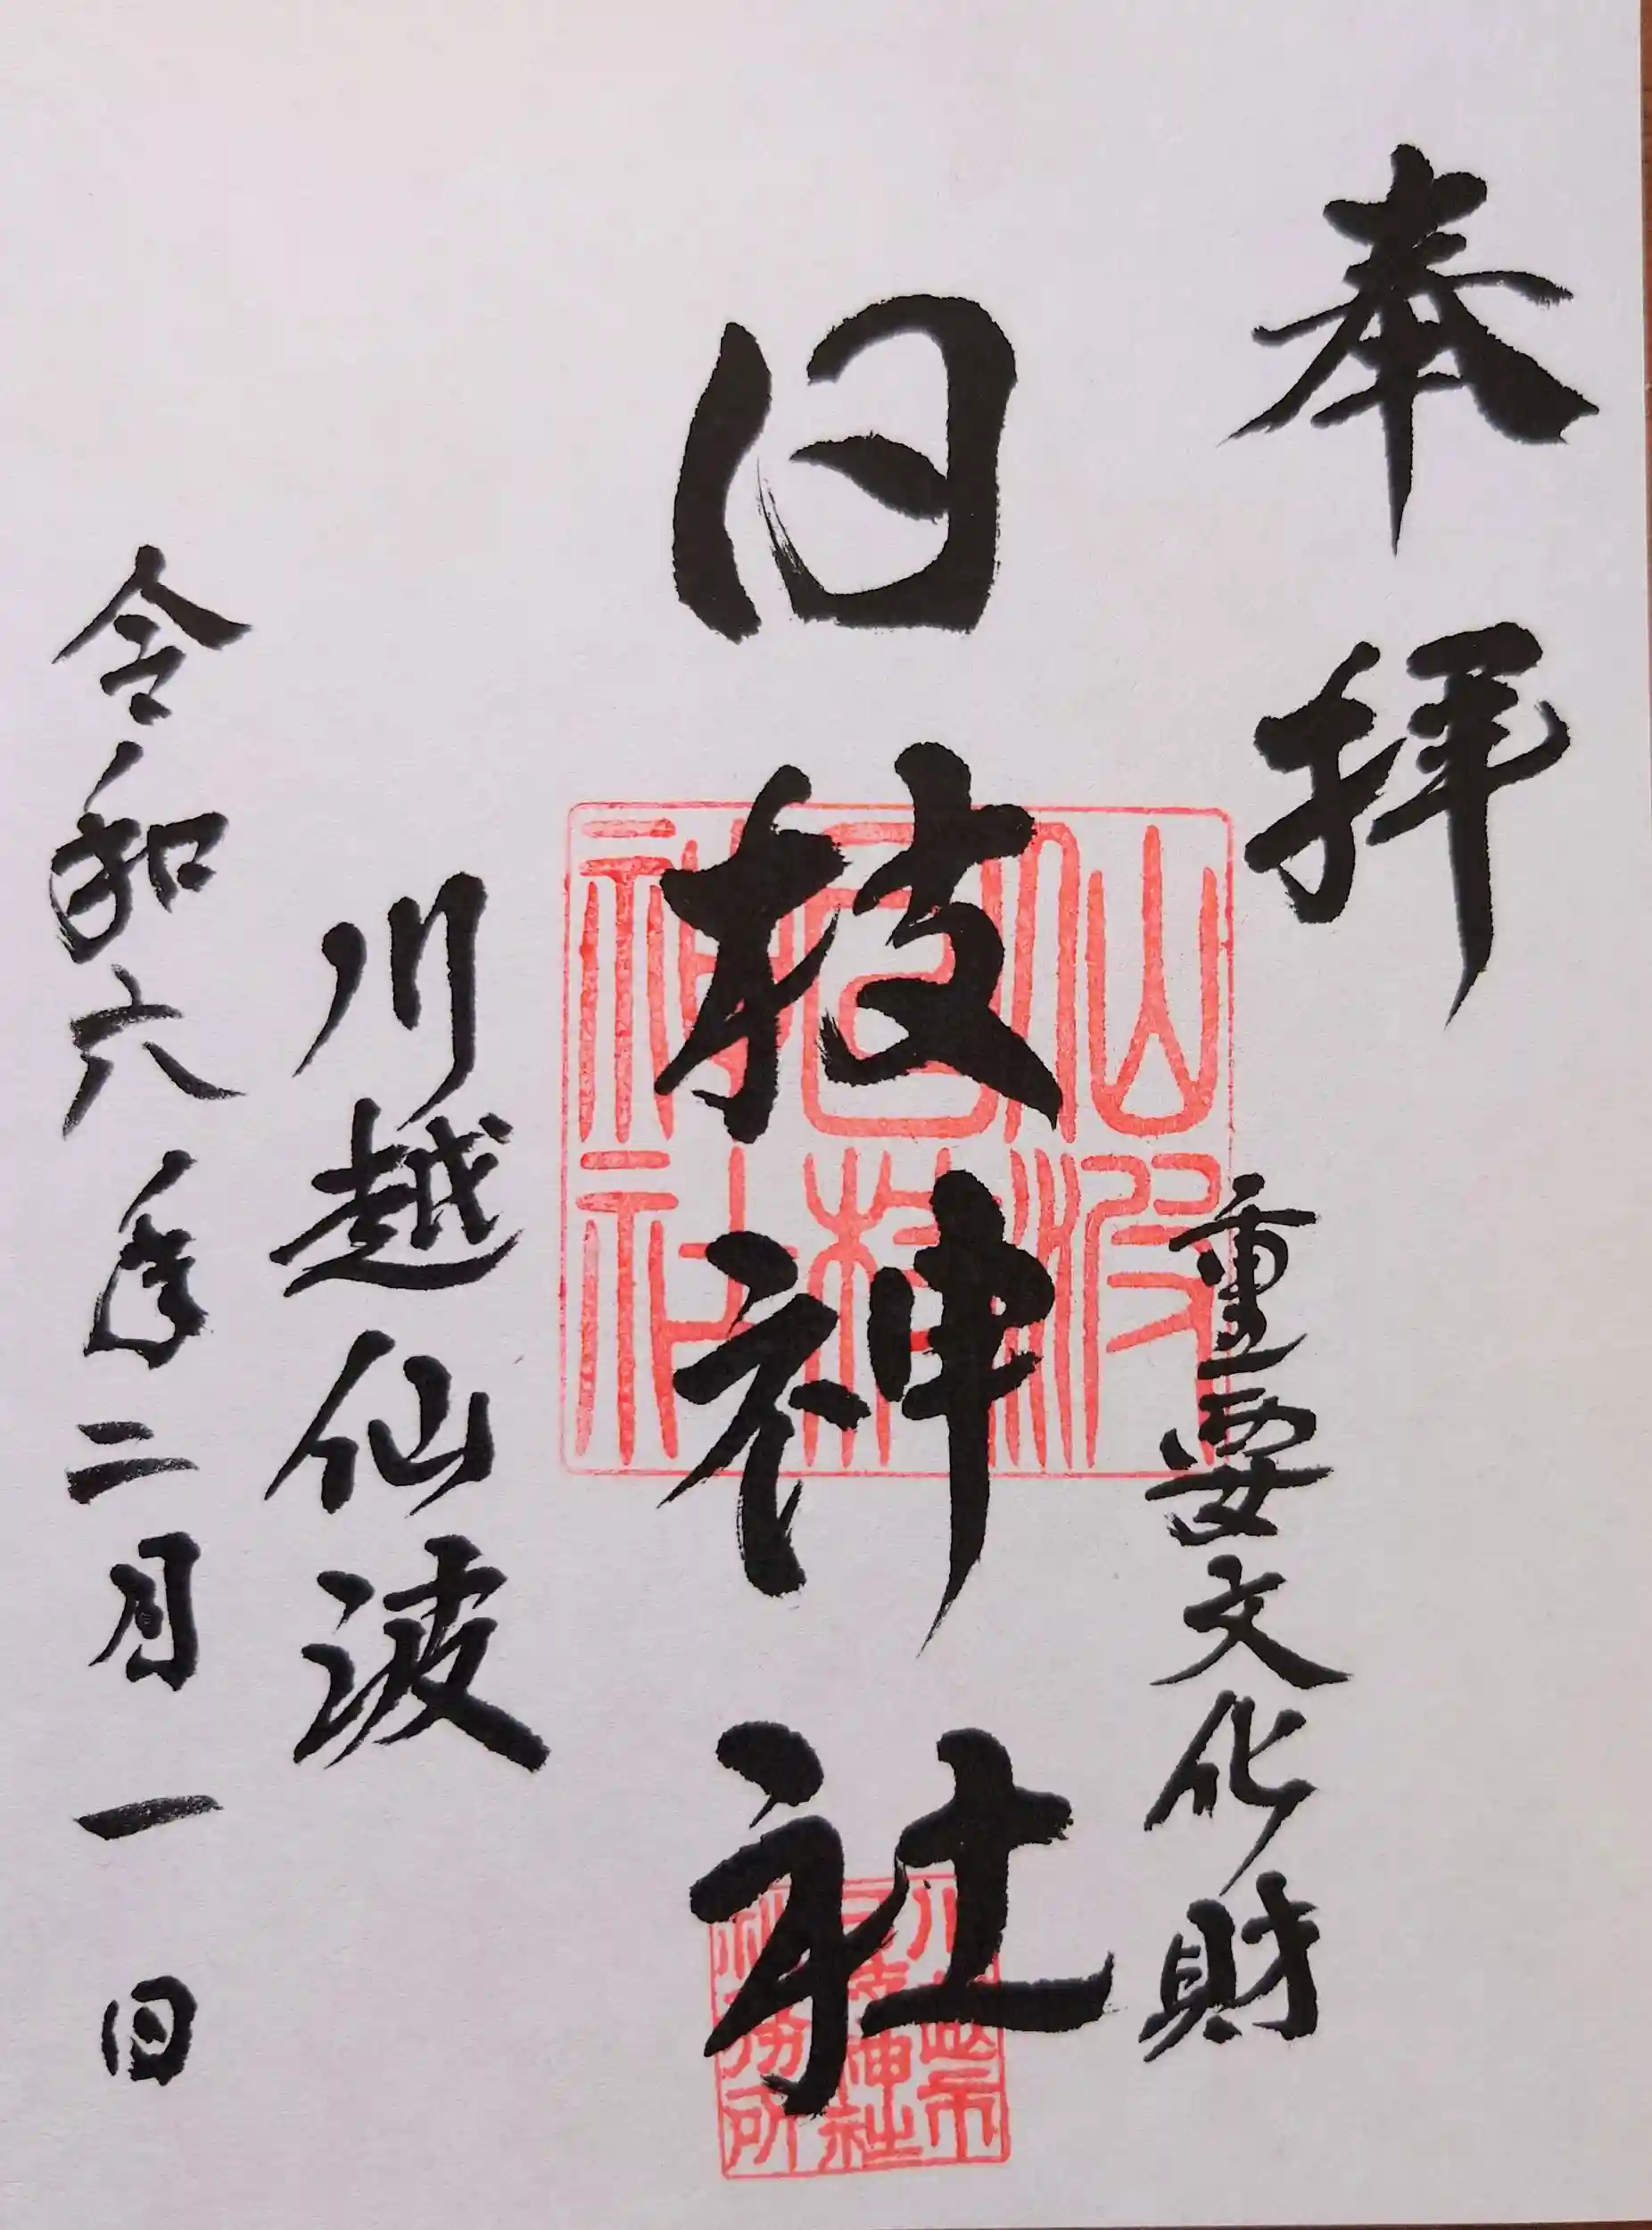 奉拝
重要文化財
日枝神社
仙波
日枝
神社
川越市
日枝神社
社務所
川越仙波
令和六年二月一日